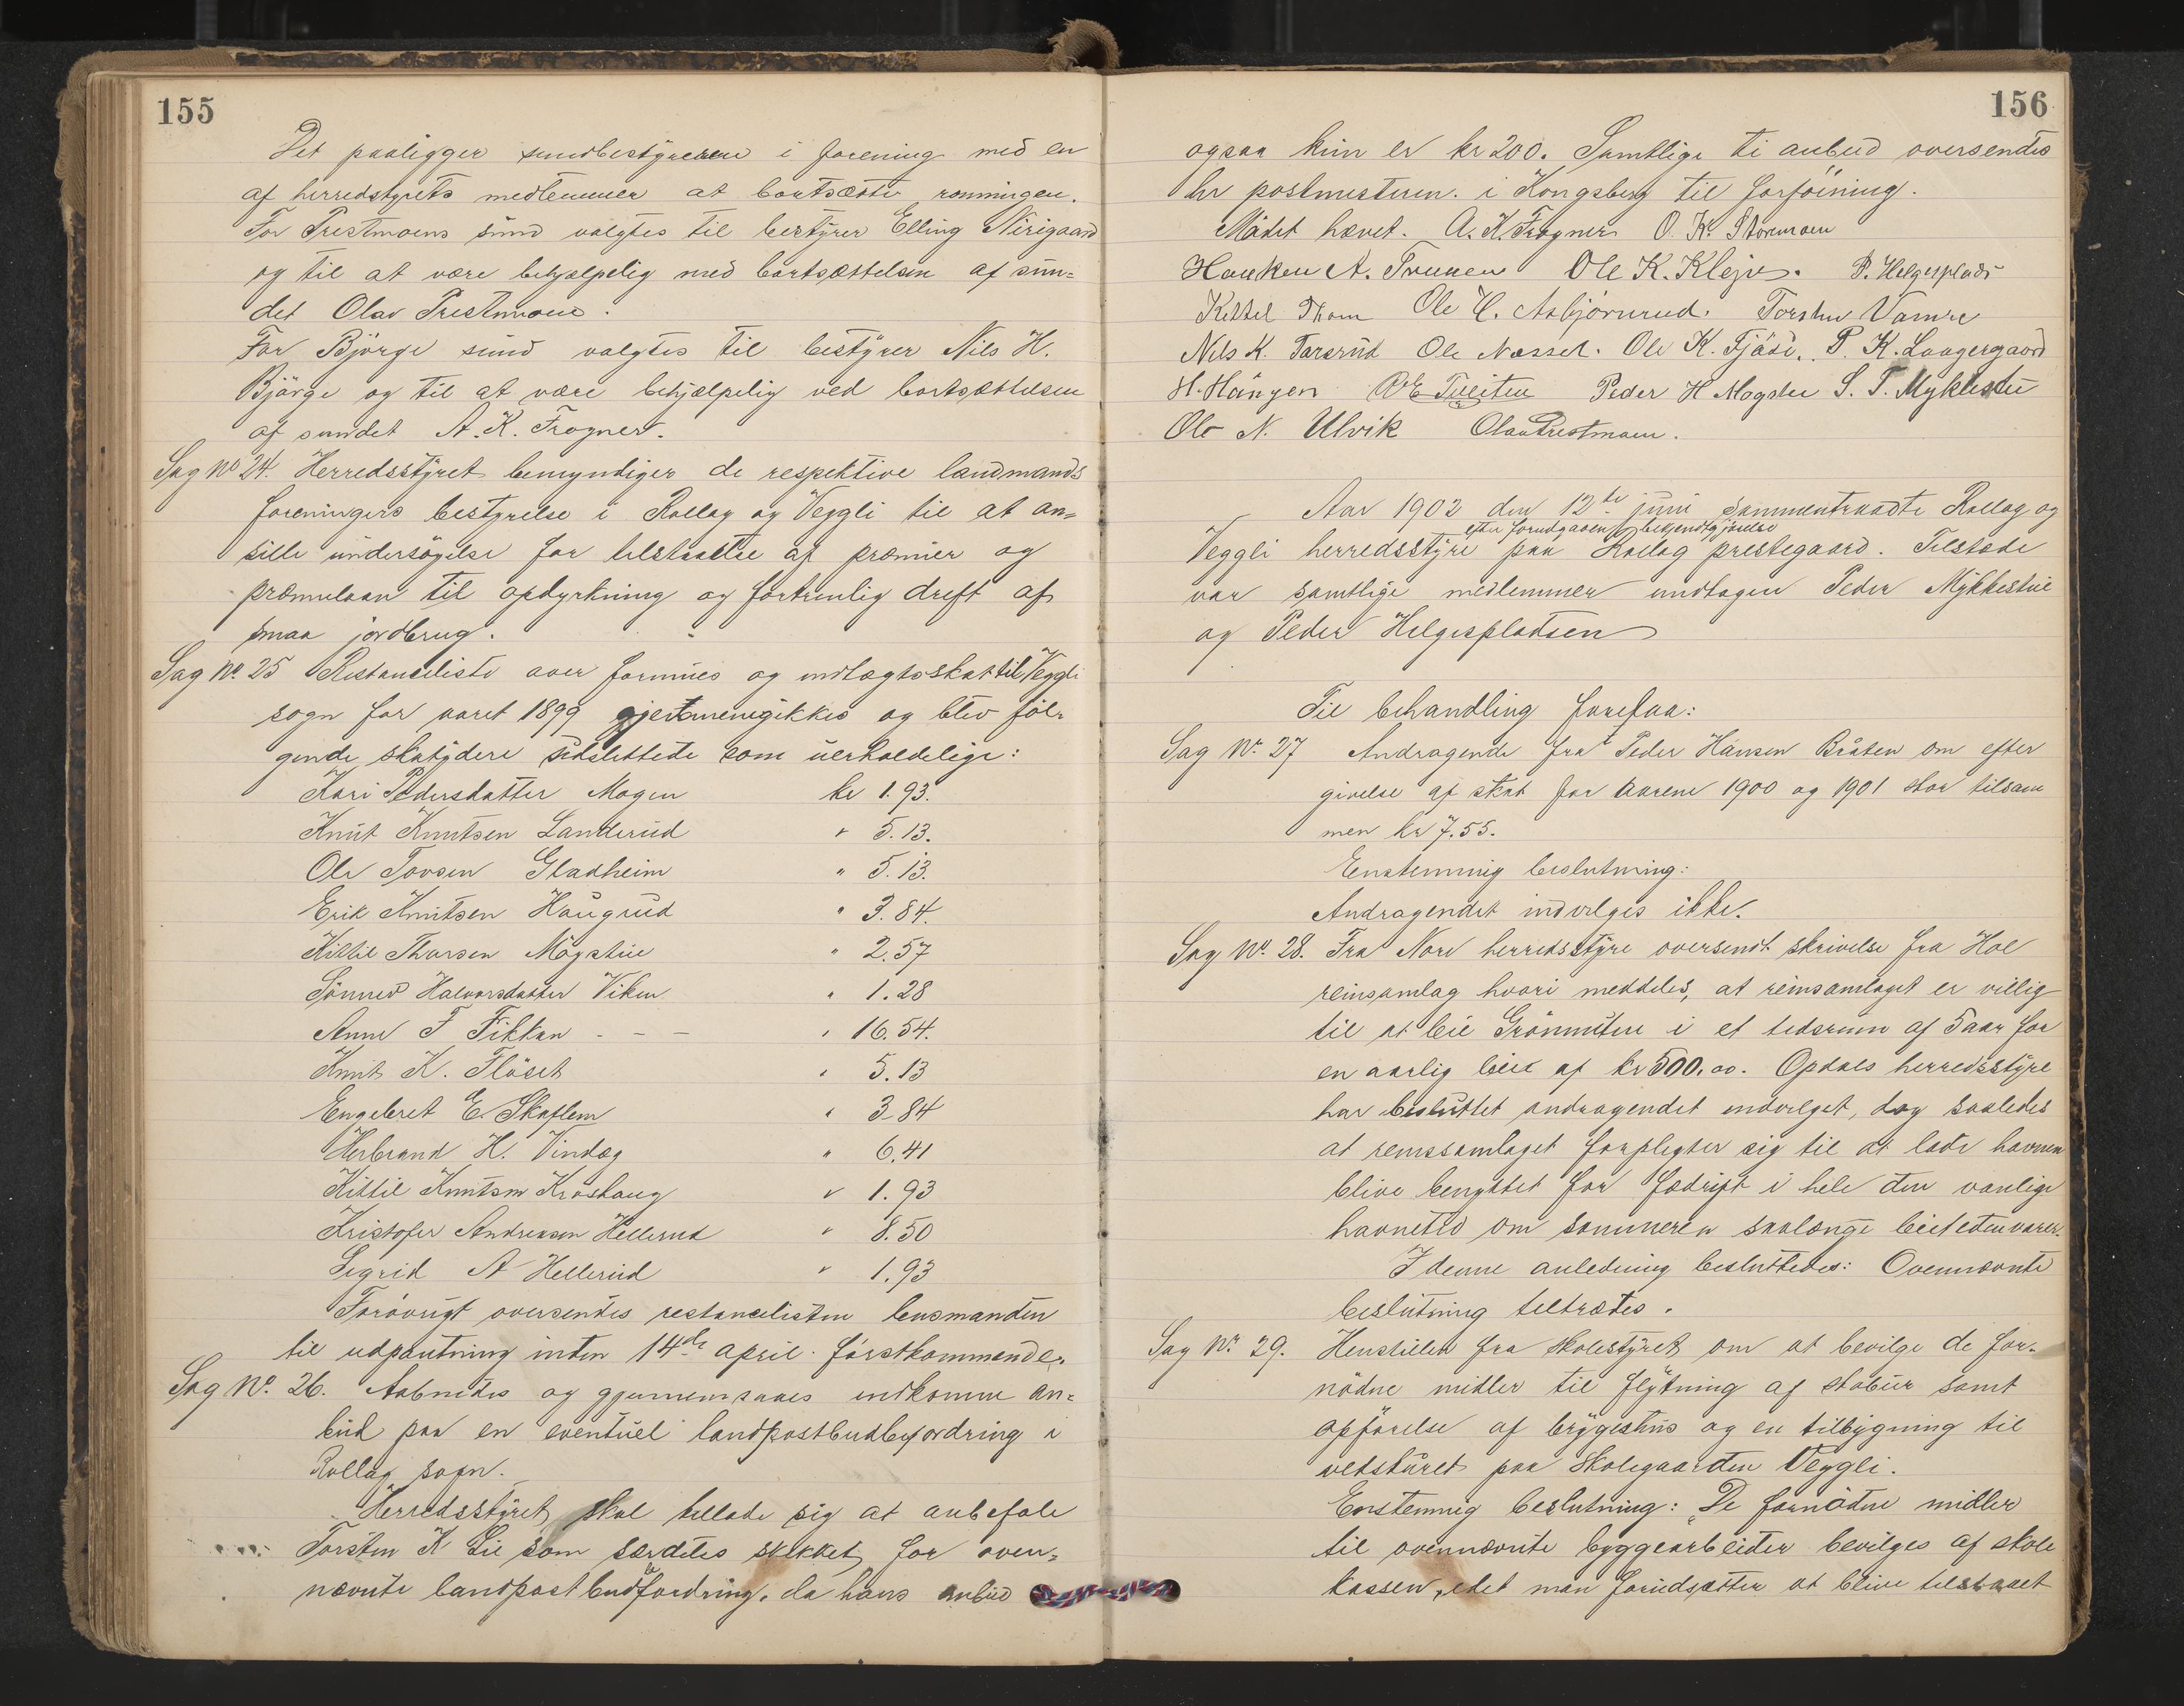 155
Det paaligger sundbestyreren i forening med en
af herredstyrets medlemmer at bortsætte roningen.
For Prestmoens sund valgtes til bestyrer Elling Nirigaard
og til at være behjælpelig med bortsættelsen af sun=
det Olav Prestmoen.
For Bjørge sund valgtes til bestyrer Nils H.
Bjørge og til at være behjælpelig ved bortsættelsen
af sundet A. K. Frogner.
Sag No 24. Herredsstyret bemyndiger de respektive landmands
foreningers bestyrelse i Rollag og Veggli til at an=
stille undersøgelse for tilstaaelse af præmier og
præmielaan til opdyrkning og fortrinlig drift af
smaa jordbrug.
Sag No. 25 Restanceliste over formues og indtægtsskat til Veggli
sogn for aaret 1899 gjennemgikkes og blev føl-
gende skatydere udslettede som uerholdelige:
Kari Pedersdatter Mogen kr 1.93.
Knut Knutsen Landerud " 5.13.
Ole Tovsen Gladheim " 5.13.
Erik Knutsen Haugrud " 3.84.
Kittil Thorsen Møgstue " 2.57
Sønnev Halvorsdatter Viken " 1.28
Anne T Fikkan - - - " 16.54.
Knut K. Fløset " 5.13
Engebret E. Skaflem " 3.84
Herbrand H. Vindeg " 6.41
Kittil Knutsen Kroshaug " 1.93
Kristofer Andreasen Hellerud " 8.50
Sigrid A Hellerud " 1.93
Forøvrigt oversendes restancelisten lensmanden
til udpantning inden 14de april førstkommende.
Sag No. 26. Aabnedes og gjennemsaaes indkomne an=
bud paa en eventuel landpostbudbefordring i
Rollag sogn.
Herredsstyret skal tillade sig at anbefale
Torsten K Lie som særdeles skikket for oven=
nævnte landpostbudbefordring, da hans anbud
156
ogsaa kun er kr 200. Samtlige ti anbud oversendes
hr postmesteren i Kongsberg til forføining.
Mødet hævet. A. K. Frogner O. K. Stormoen
Haaken A. Trunen Ole K. Kleju. P. Helgesplads
Kittel Thom Ole H. Asbjørnrud. Torsten Vamre
Nils K. Tarsrud Ole Næsset. Ole K. Fjøse. P. K. Laagergaard
H. Hængen OE Tveiten Peder H Mogstu S. T. Myklestu
Ole N. Ulvik Olav Prestmoen.
Aar 1902 den 12te juni sammentraadte Rollag og
efter forudgaaende bekjendtgjørelse
Veggli herredsstyre paa Rollag prestegaard. Tilstede
var samtlige medlemmer undtagen Peder Mykkestue
og Peder Helgespladsen
Til behandling forelaa:
Sag No. 27 Andragende fra Peder Hansen Bråten om efter
givelse af skat for aarene 1900 og 1901 stor tilsam
men kr 7.55.
Enstemmig beslutning:
Andragendet indvilges ikke.
Sag No. 28. Fra Nore herredsstyre oversendt skrivelse fra Hol
reinsamlag hvori meddeles, at reinsamlaget er villig
til at leie Grønnuten i et tidsrum af 5 aar for
en aarlig leie af kr 500.00. Opdals herredsstyre
har besluttet andragendet indvilget, dog saaledes
at rensamlaget forpligter sig til at lade havnen
blive benyttet for fædrift i hele den vanlige
havnetid om sommeren saalænge leietiden varer.
I denne anledning besluttedes: Ovennævnte
beslutning tiltrædes.
Sag No. 29. Henstillen fra skolestyret om at bevilge de for-
nødne midler til flytning af stabur samt
opførelse af bryggehus og en tilbygning til
vedskuret paa skolegaarden Veggli.
Enstemmig beslutning: De fornødne midler
til ovennævnte byggearbeider bevilges af skole
kassen, idet man forudsætter at blive tilstaaet